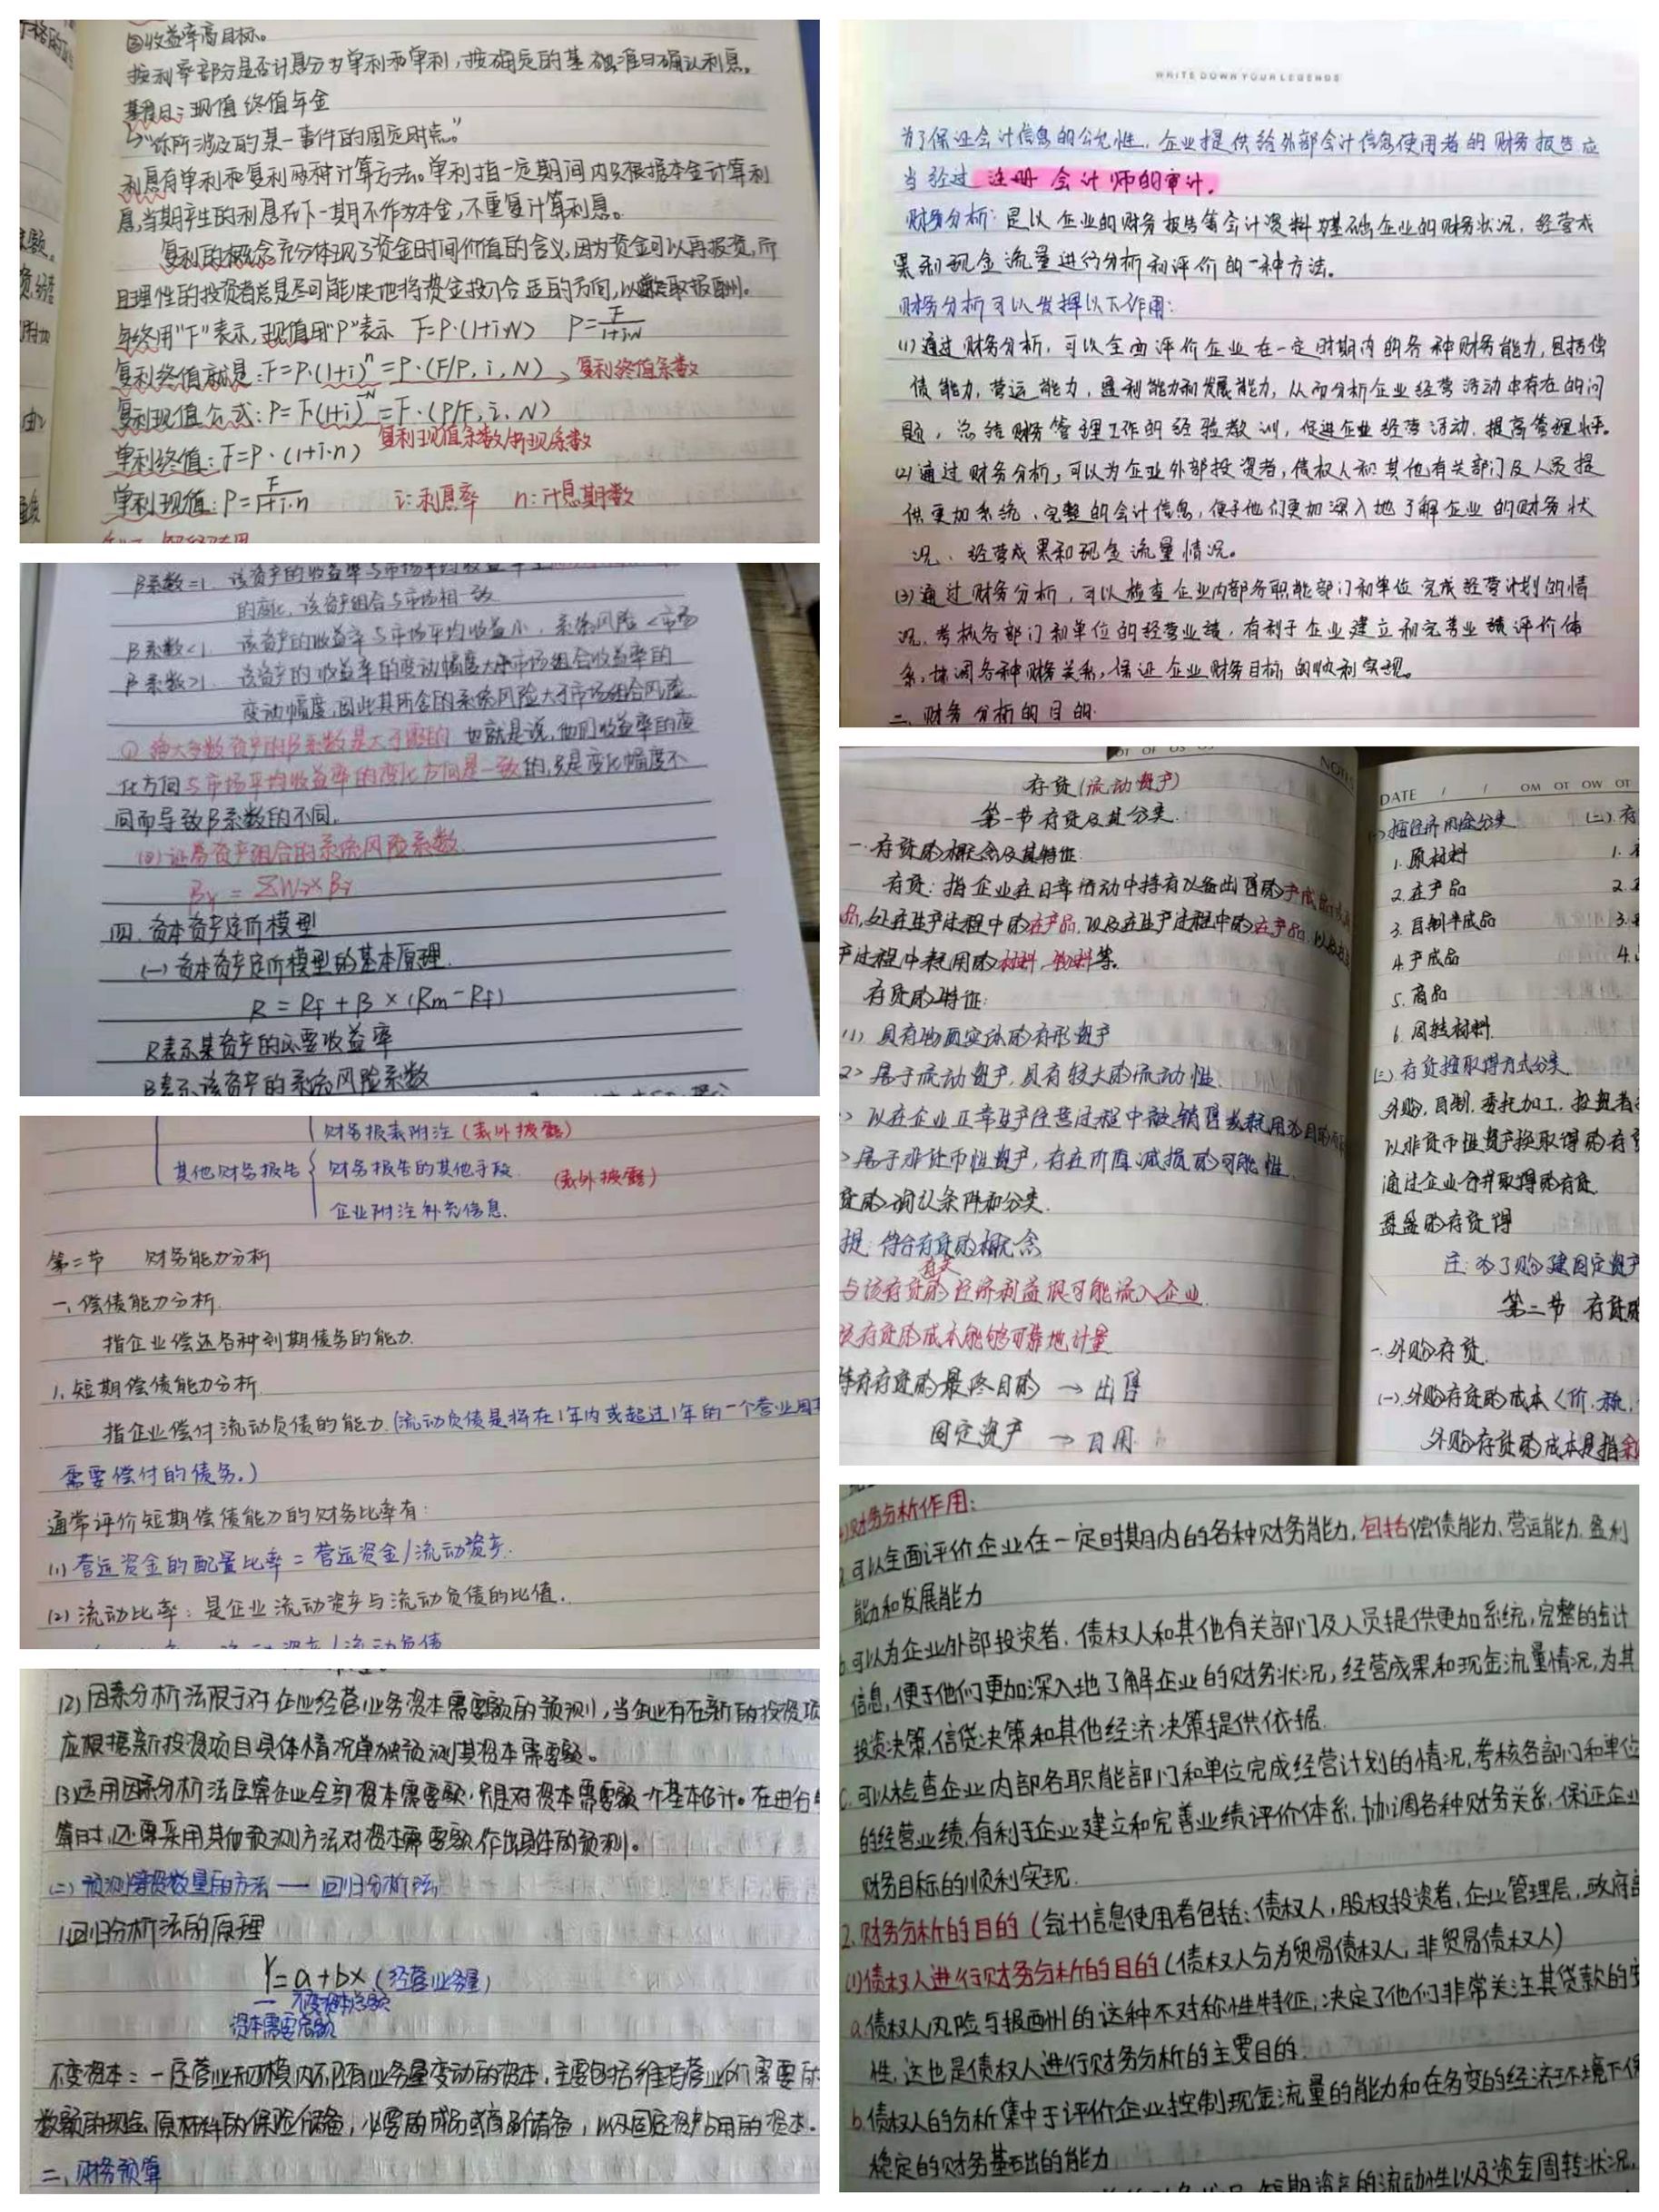 ②收益率高目标。
按利率部分是否计息分为单利和单利,按确定的基础准日确认利息。
基准日:现值 终值 年金
↳"你所涉及的某一事件的固定时点。"
利息有单利和复利两种计算方法。单利指一定期间内只根据本金计算利
息,当期产生的利息在下一期不作为本金,不重复计算利息。
复利的概念充分体现了资金时间价值的含义,因为资金可以再投资,而
且理性的投资者总是尽可能快地将资金投入合适的方向,以赚取报酬。
年终用"F"表示,现值用"P"表示 F=P·(1+i·N) P=F/1+i·N
复利终值就是:F=P·(1+i)^n=P·(F/P, i, N) → 复利终值系数
复利现值公式:P=F(1+i)^-N=F·(P/F, i, N)
复利现值系数/折现系数
单利终值:F=P·(1+i·n)
单利现值:P=F/1+i·n i:利息率 n:计息期数
β系数=1. 该资产的收益率与市场平均收益率
的变化, 该资产组合与市场相一致
β系数<1. 该资产的收益率与市场平均收益小, 系统风险<市场
β系数>1. 该资产的收益率的变动幅度大于市场组合收益率的
变动幅度,因此其所含的系统风险大于市场组合风险.
① 绝大多数资产的β系数是大于零的 也就是说,他们收益率的变
化方向与市场平均收益率的变化方向是一致的,只是变化幅度不
同而导致β系数的不同.
(2)证券资产组合的系统风险系数
四. 资本资产定价模型
(一) 资本资产定价模型的基本原理.
R = Rf + β × (Rm-Rf)
R表示某资产的必要收益率
β表示该资产的系统风险系数
财务报表附注 (表外披露)
其他财务报告
财务报告的其他手段. (表外披露)
企业附注补充信息.
第二节 财务能力分析
一, 偿债能力分析.
指企业偿还各种到期债务的能力.
1. 短期偿债能力分析
指企业偿付流动负债的能力.(流动负债是将在1年内或超过1年的一个营业周
需要偿付的债务。)
通常评价短期偿债能力的财务比率有:
(1) 营运资金的配置比率 = 营运资金/流动资产.
(2) 流动比率: 是企业流动资产与流动负债的比值.
流动资产/流动负债
(2)因素分析法限于对企业经营业务资本需要额的预测,当企业存在新的投资项
应根据新投资项目具体情况单独预测其资本需要额。
(3)运用因素分析法匡算企业全部资本需要额,只是对资本需要额一个基本估计。在进行
算时,还要采用其他预测方法对资本需要额作出具体的预测。
(二) 预测筹资数量的方法 — 回归分析法
1.回归分析法的原理
Y=a+bx (经营业务量)
不变资本总额
资本需要总额
不变资本:一定营业规模内不随业务量变动的资本,主要包括维持营业所需要的
数额的现金,原材料的保险储备,必要的成品或商品储备,以及固定资产占用的资本.
二, 财务预算
WRITE DOWN YOUR LEGENDS
为了保证会计信息的公允性, 企业提供给外部会计信息使用者的财务报告应
当经过 注册 会计师的审计.
财务分析: 是以企业的财务报告等会计资料为基础,企业的财务状况, 经营成
果和现金流量进行分析和评价的一种方法。
财务分析可以发挥以下作用:
(1)通过财务分析, 可以全面评价企业在一定时期内的各种财务能力,包括偿
债能力,营运能力, 盈利能力和发展能力, 从而分析企业经营活动中存在的问
题, 总结财务管理工作的经验教训, 促进企业经营活动, 提高管理水平。
(2)通过财务分析,可以为企业外部投资者,债权人和其他有关部门及人员提
供更加系统、完整的会计信息,便于他们更加深入地了解企业的财务状
况、经营成果和现金流量情况。
(3)通过财务分析, 可以检查企业内部各职能部门和单位完成经营计划的情
况, 考核各部门和单位的经营业绩, 有利于企业建立和完善业绩评价体
系,协调各种财务关系,保证企业财务目标的顺利实现。
二. 财务分析的目的
NOTE
存货(流动资产)
第一节 存货及其分类.
一. 存货的概念及其特征
存货: 指企业在日常活动中持有以备出售的产成品或商
品,处在生产过程中的在产品, 以及在生产过程中的在产品
产过程中耗用的材料, 物料等.
存货的特征:
(1) 具有物质实体的有形资产
2> 属于流动资产, 具有较大的流动性.
> 以在企业正常生产经营过程中被销售或耗用为目的而
> 属于非货币性资产, 存在价值减损的可能性.
货的确认条件和分类.
提: 符合存货的概念
有关
与该存货的经济利益很可能流入企业.
该存货的成本能够可靠地计量
持有存货的最终目的 → 出售
固定资产 → 自用
DATE / / OM OT OW OT
(一)按经济用途分类 (二)存
1. 原材料 1.
2. 在产品 2.
3. 自制半成品 3.
4. 产成品 4.
5. 商品
6. 周转材料.
(三)存货按取得方式分类.
外购,自制,委托加工,投资者
以非货币性资产换取得的存货
通过企业合并取得的存货
盘盈的存货 得
注: 为了购建固定资产
第二节 存货的
一. 外购存货.
(一). 外购存货的成本 <价, 税,
外购存货的成本是指
财务分析作用:
a.可以全面评价企业在一定时期内的各种财务能力,包括偿债能力、营运能力、盈利
能力和发展能力
b.可以为企业外部投资者,债权人和其他有关部门及人员提供更加系统,完整的会计
信息,便于他们更加深入地了解企业的财务状况,经营成果,和现金流量情况,为其
投资决策,信贷决策和其他经济决策提供依据.
c.可以检查企业内部各职能部门和单位完成经营计划的情况,考核各部门和单位
的经营业绩,有利于企业建立和完善业绩评价体系,协调各种财务关系,保证企业
财务目标的顺利实现.
2.财务分析的目的 (会计信息使用者包括:债权人,股权投资者,企业管理层,政府部
(1)债权人进行财务分析的目的(债权人分为贸易债权人,非贸易债权人)
a.债权人风险与报酬的这种不对称性特征,决定了他们非常关注其贷款的安
性,这也是债权人进行财务分析的主要目的.
b.债权人的分析集中于评价企业控制现金流量的能力和在多变的经济环境下保
稳定的财务基础的能力
短期资产的流动性以及资金周转状况,